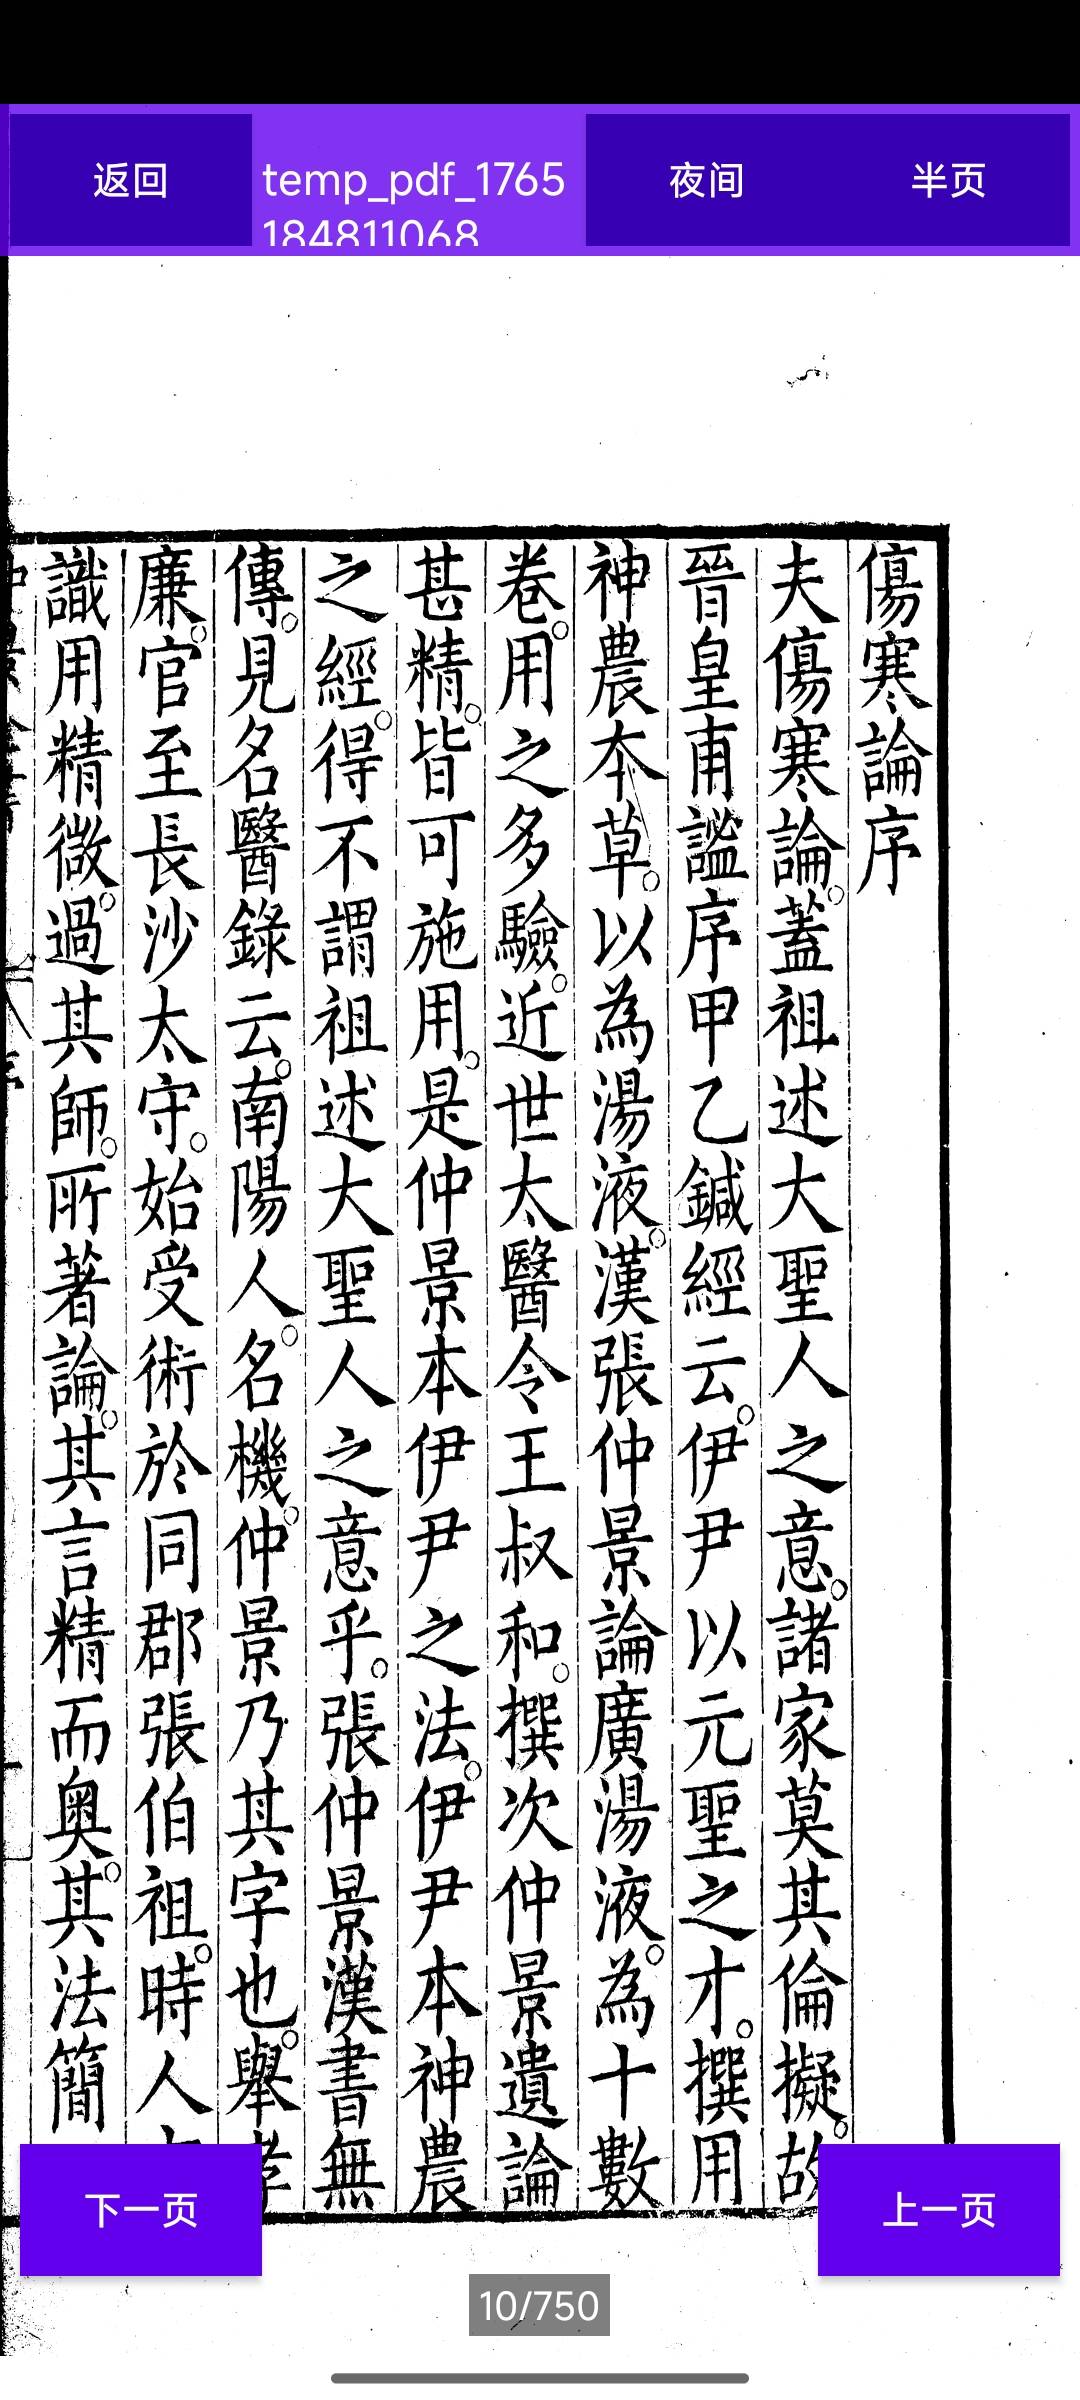 返回
temp_pdf_1765
184811068
夜间
半页
傷寒論序
夫傷寒論。蓋祖述大聖人之意。諸家莫其倫擬。故
晉皇甫謐序甲乙鍼經云。伊尹以元聖之才。撰用
神農本草。以為湯液。漢張仲景論廣湯液。為十數
卷。用之多驗。近世太醫令王叔和。撰次仲景遺論
甚精。皆可施用。是仲景本伊尹之法。伊尹本神農
之經。得不謂祖述大聖人之意乎。張仲景漢書無
傳。見名醫錄云。南陽人。名機。仲景乃其字也。舉孝
廉。官至長沙太守。始受術於同郡張伯祖。時人
識用精微。過其師。所著論。其言精而奥。其法簡
下一页
上一页
10/750